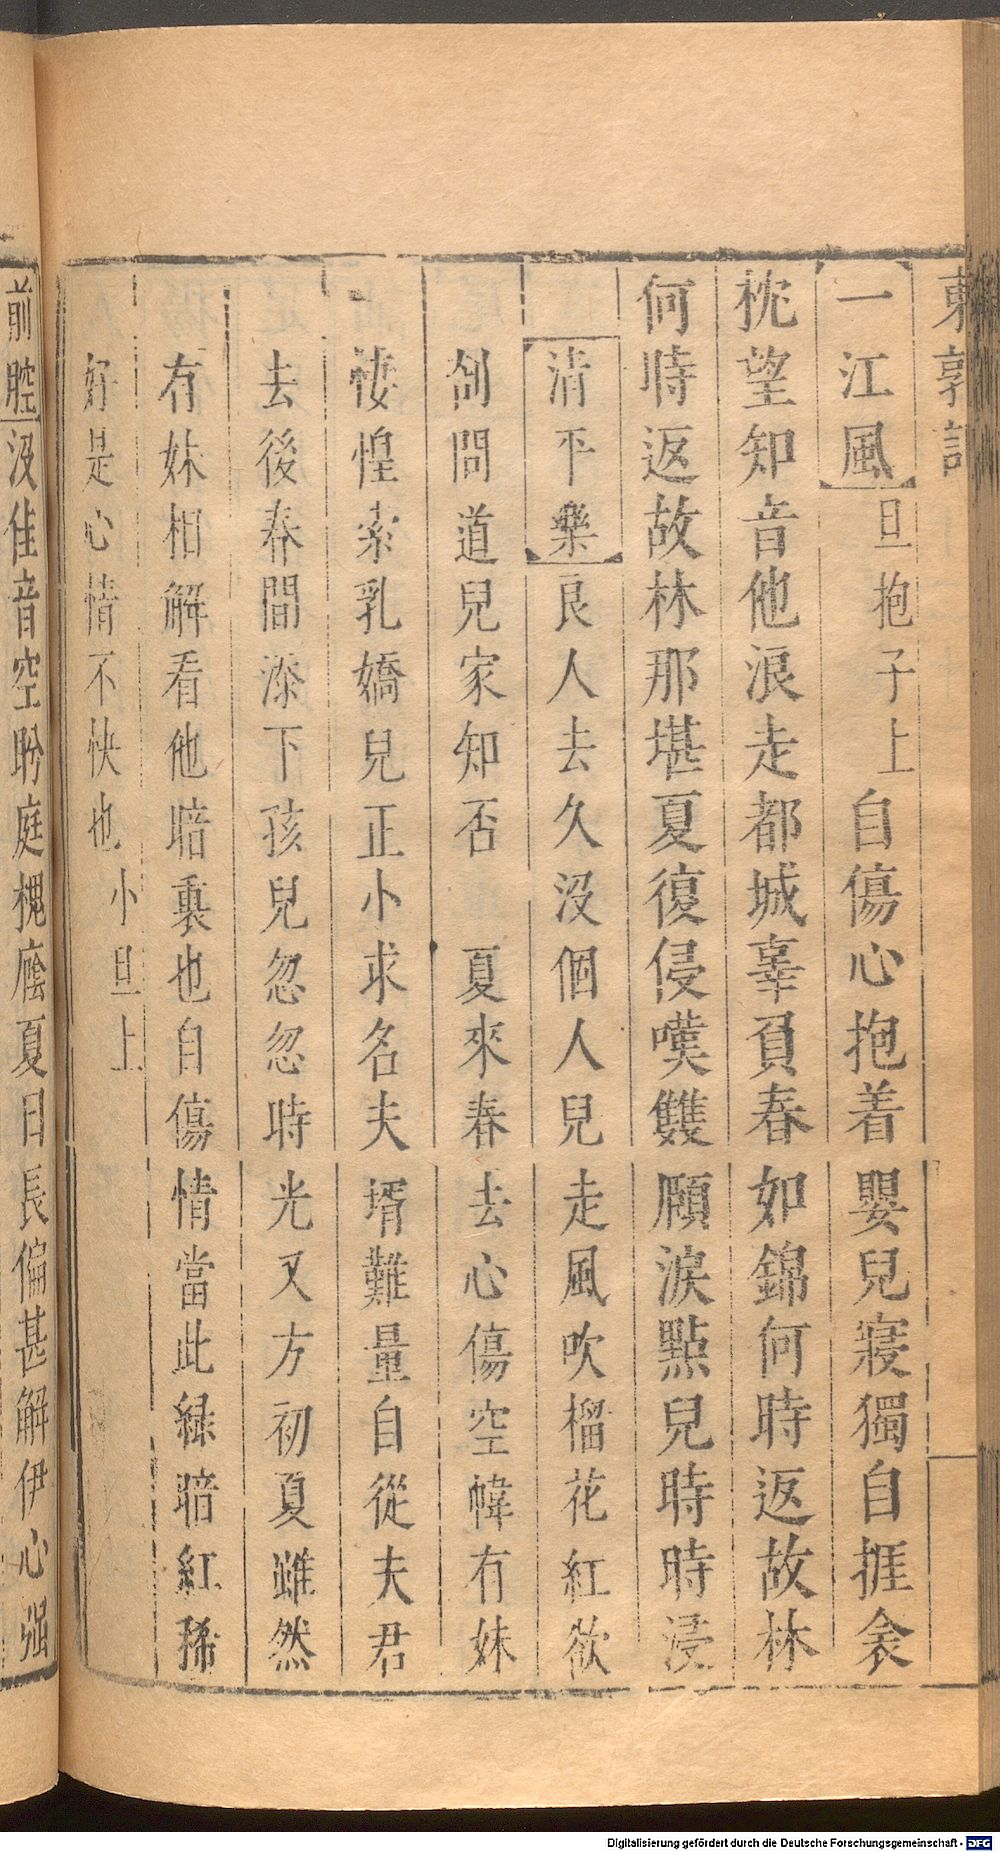 東郭記
一江風 旦抱子上 自傷心抱着嬰兒寢獨自捱衾
枕望知音他浪走都城辜負春如錦何時返故林
何時返故林那堪夏復侵嘆雙頤淚點兒時時浸
清平樂 良人去久沒個人兒走風吹榴花紅欲
劄問道兒家知否 夏來春去心傷空幃有妹
悽惶索乳嬌兒正小求名夫壻難量自從夫君
去後春間添下孩兒忽忽時光又方初夏雖然
有妹相解看他暗裏也自傷情當此綠暗紅稀
好是心情不快也 小旦上
前腔 沒佳音空盻庭槐廕夏日長偏甚解伊心强
Digitalisierung gefördert durch die Deutsche Forschungsgemeinschaft - DFG